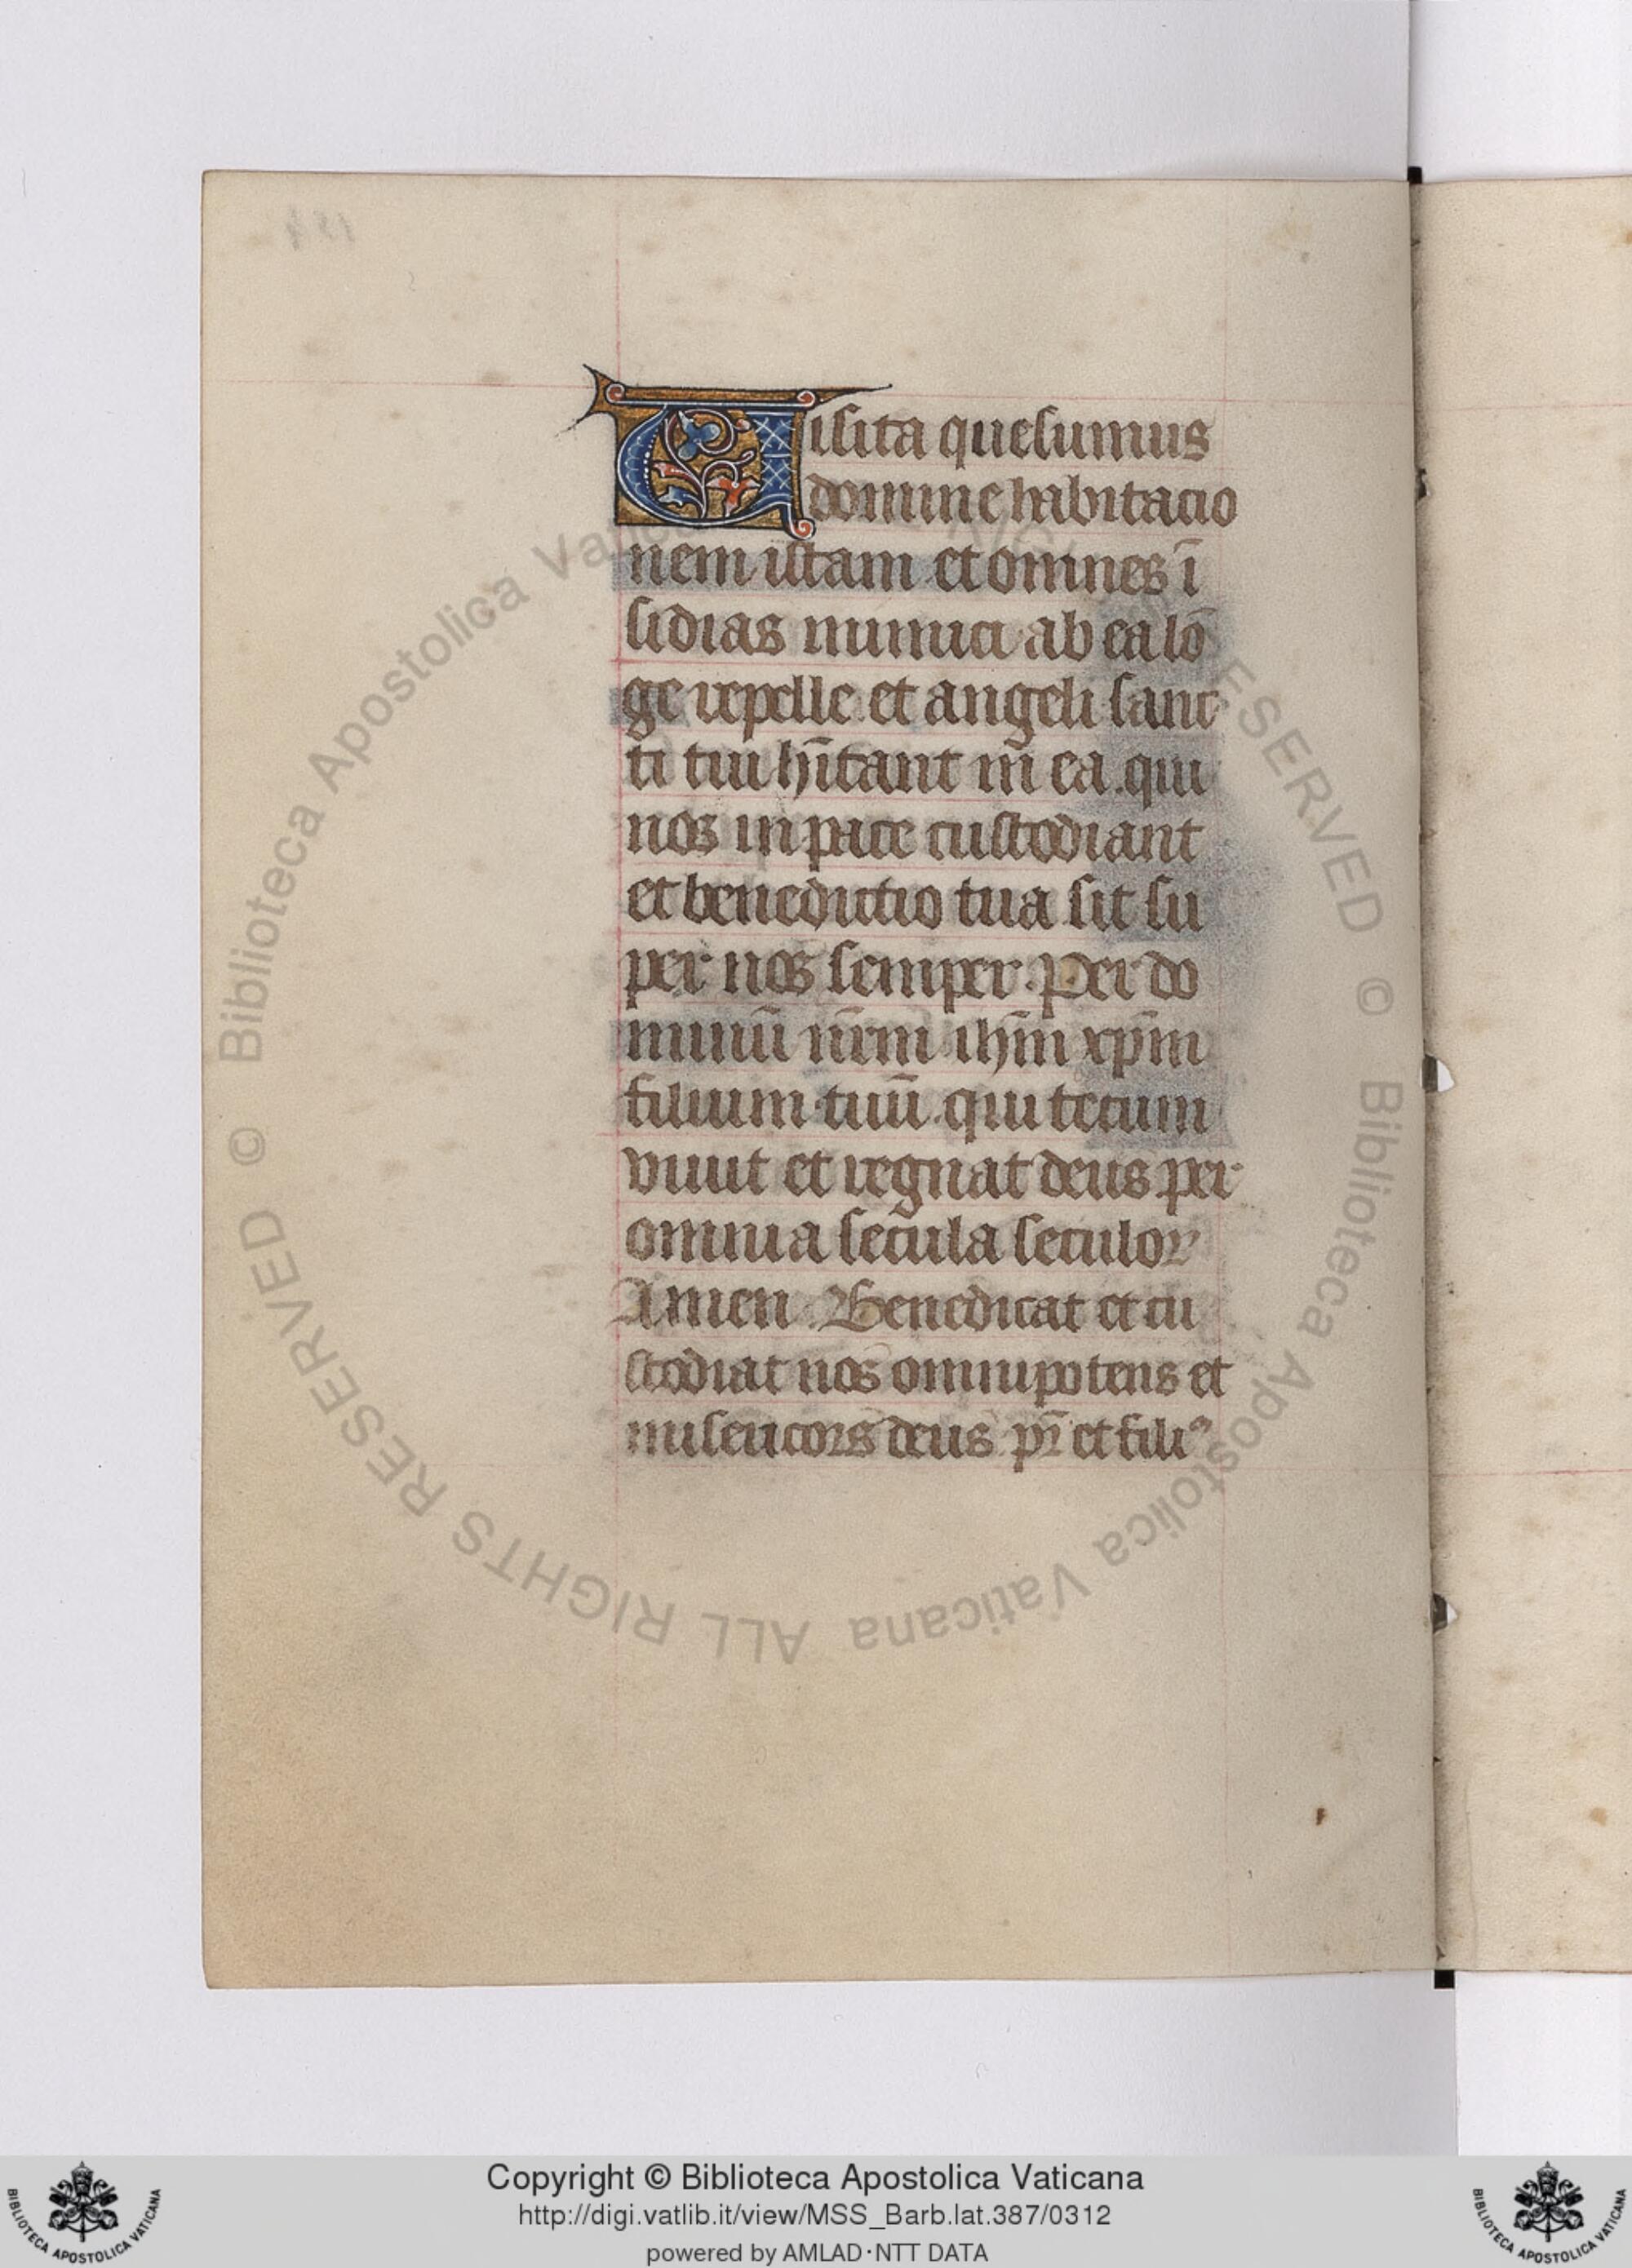 Uisita quesumus
domine habitacio
nem istam et omnes ī
sidias inimici ab ea lō
ge repelle et angeli sanc
ti tui hītant īn ea. qui
nos in pace custodiant
et benedictio tua sit su
per nos semper. Per do
minū nr̄m ihm̄ xpm̄
filium tuū. qui tecum
viuit et regnat deus per
omnia secula seculoꝝ
Amen. Benedicat et cu
stodiat nos omnipotens et
misericors deus pr̄ et filiꝰ
Copyright © Biblioteca Apostolica Vaticana
http://digi.vatlib.it/view/MSS_Barb.lat.387/0312
powered by AMLAD·NTT DATA
BIBLIOTECA APOSTOLICA VATICANA
BIBLIOTECA APOSTOLICA VATICANA
© Biblioteca Apostolica Vaticana
ALL RIGHTS RESERVED
© Biblioteca Apostolica Vaticana
ALL RIGHTS RESERVED